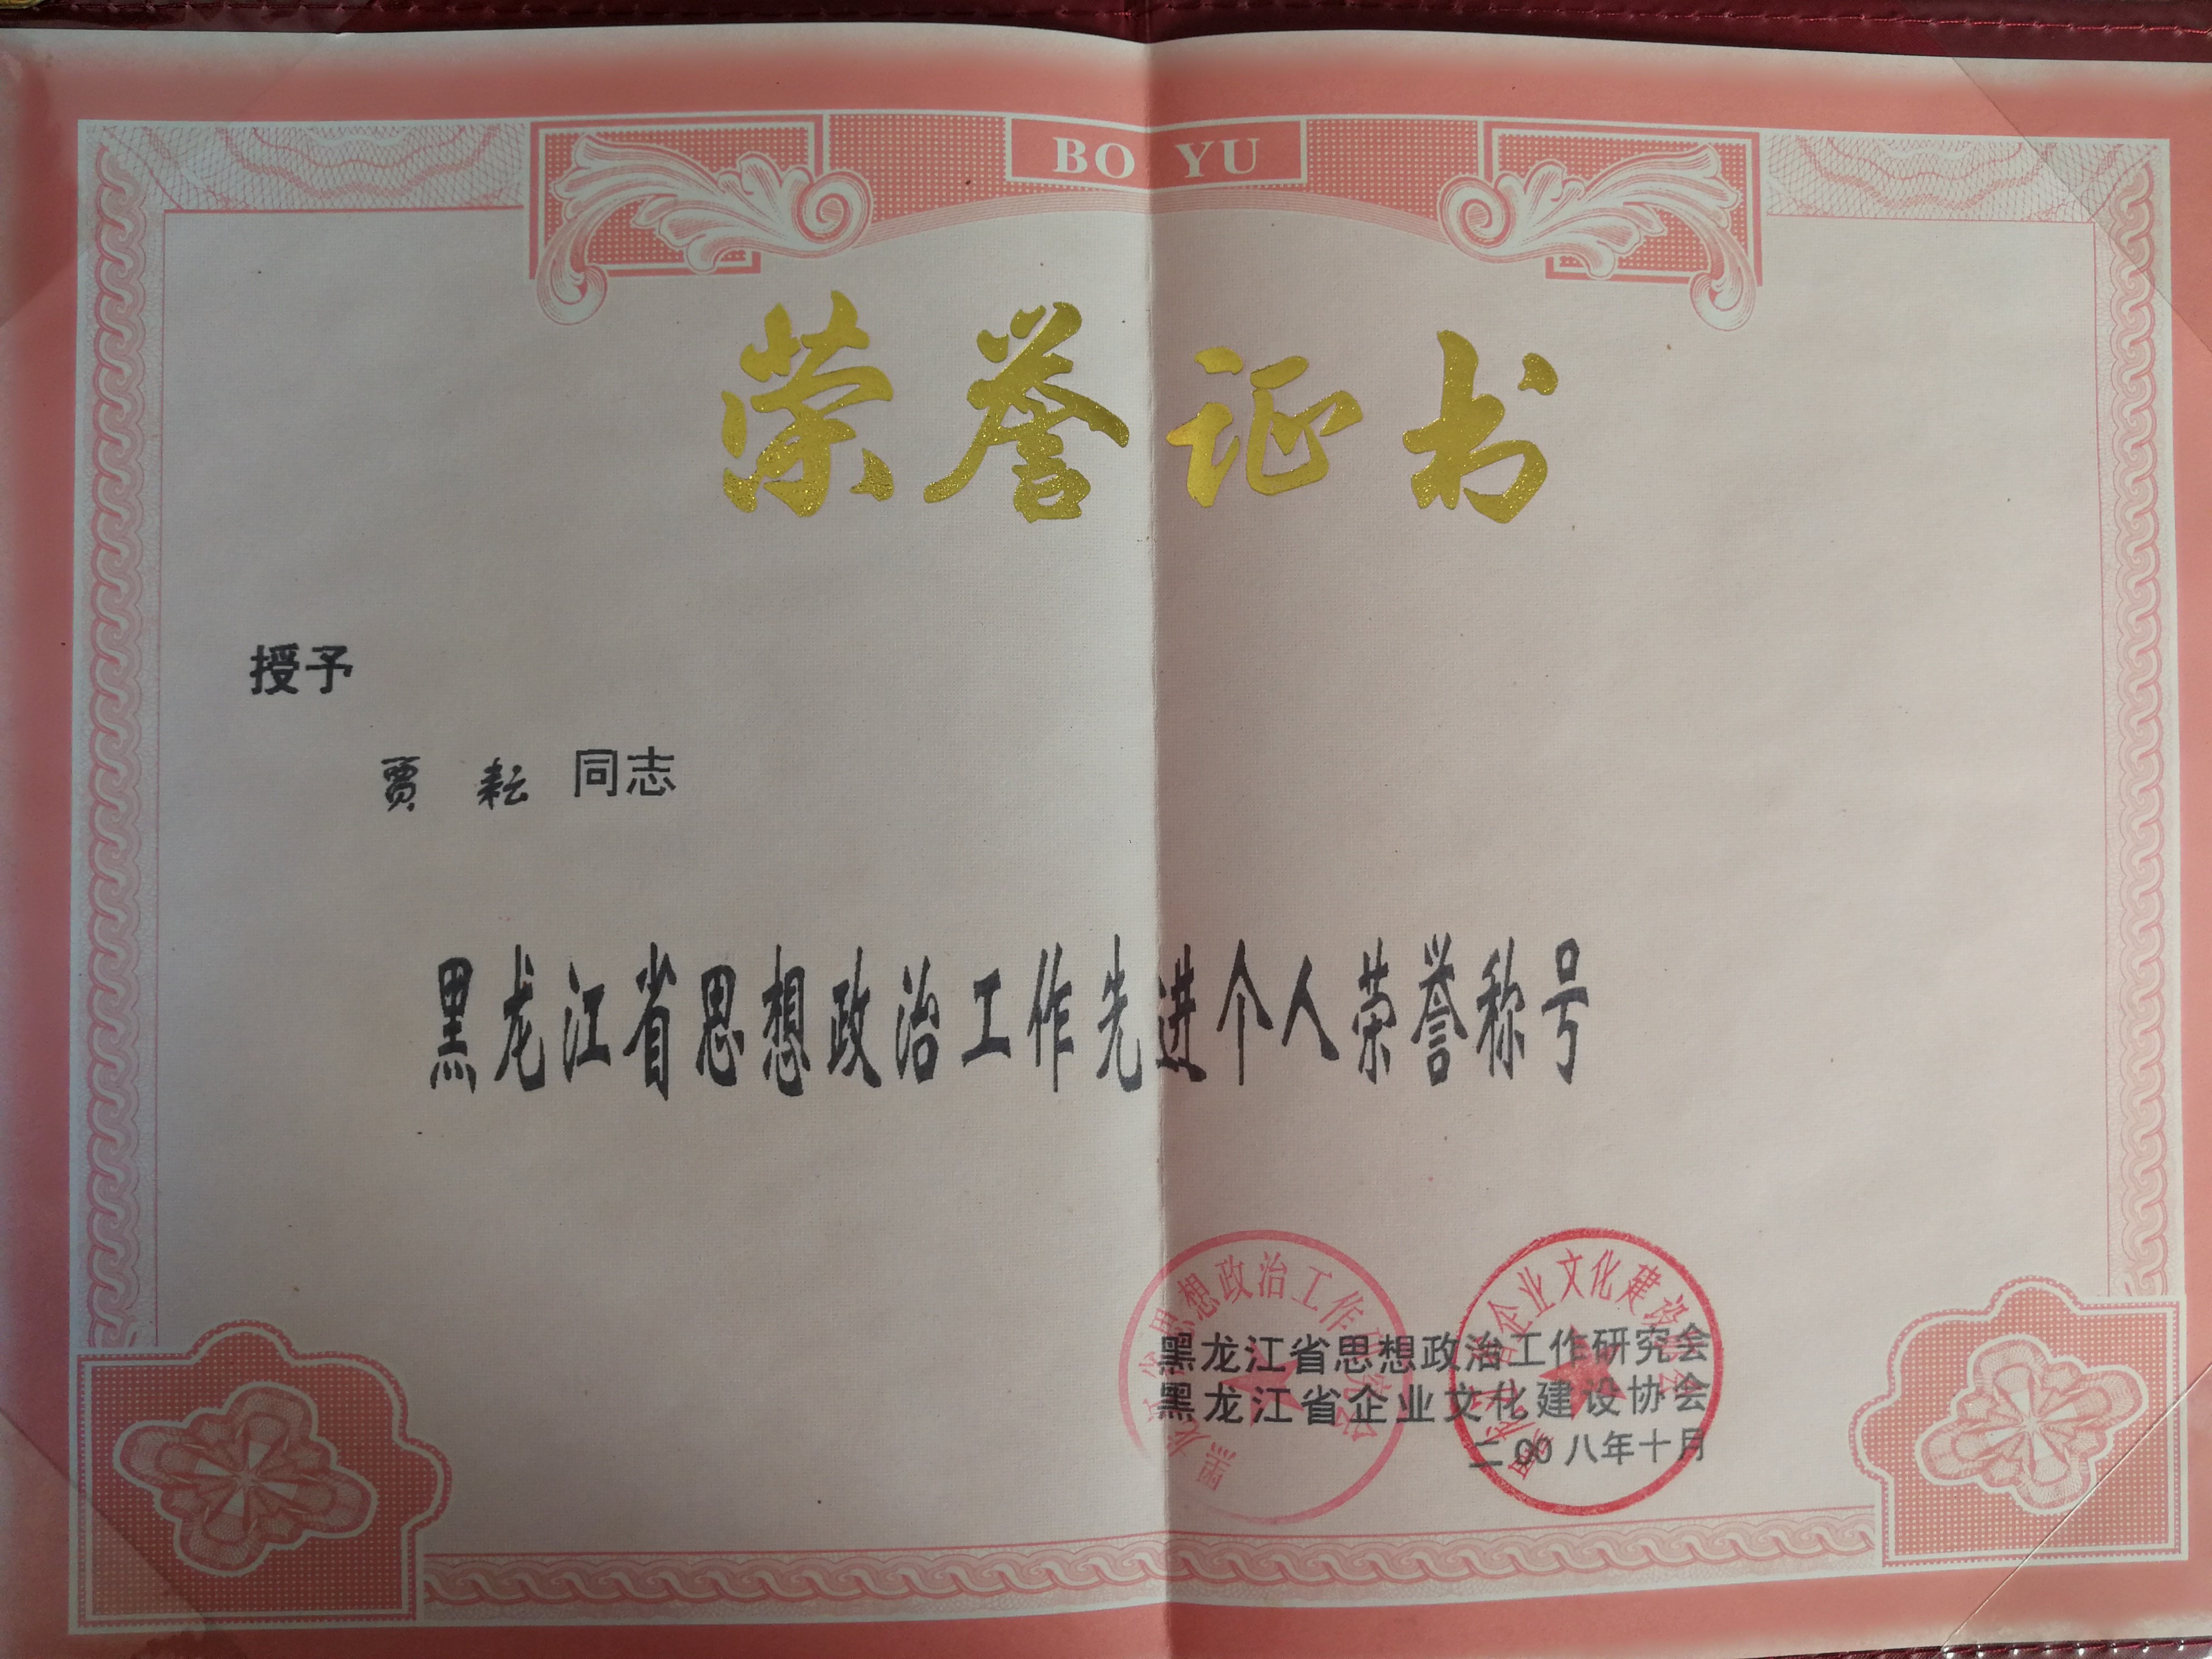 BO YU
荣誉证书
授予
贾 耘 同志
黑龙江省思想政治工作先进个人荣誉称号
黑龙江省思想政治工作研究会
黑龙江省企业文化建设协会
二00八年十月